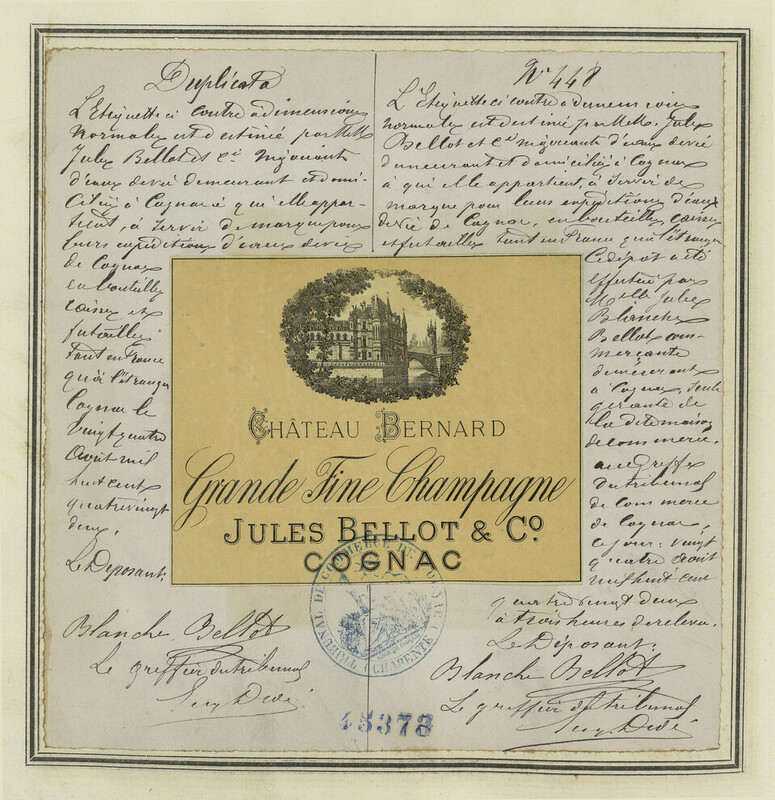 Duplicata
L'Etiquette ci contre a dimensions
normales est destinée par MM
Jules Bellot et Cie négociants
d'eaux de vie demeurant et domi-
ciliés à Cognac à qui elle appar-
tient, à servir de marque pour
leurs expéditions d'eaux de vie
de Cognac
en bouteilles
caisses et
futailles
tant en France
qu'à l'étranger
Cognac le
vingt quatre
Août mil
huit cent
quatre vingt
deux.
Le Déposant:
Blanche Bellot
Le greffier du tribunal
No 448
L'Etiquette ci contre a dimensions
normales est destinée par MM. Jules
Bellot et Cie négociants d'eaux de vie
demeurant et domiciliés à Cognac
à qui elle appartient, à servir de
marque pour leurs expéditions d'eaux
de vie de Cognac, en bouteilles caisses
et futailles tant en France qu'à l'étranger
Ce dépôt a été
effectué par
Melle Julie
Blanche
Bellot com-
merçante
demeurant
à Cognac, seule
gérante de
la dite maison
de commerce.
au greffe
du tribunal
de Commerce
de Cognac,
ce jour: vingt
quatre août
mil huit cent
quatre vingt deux
à trois heures de relevée.
Le Déposant:
Blanche Bellot
Le greffier du tribunal
CHÂTEAU BERNARD
Grande Fine Champagne
JULES BELLOT & Co
COGNAC
TRIBUNAL DE COMMERCE DE COGNAC
(CHARENTE)
45378